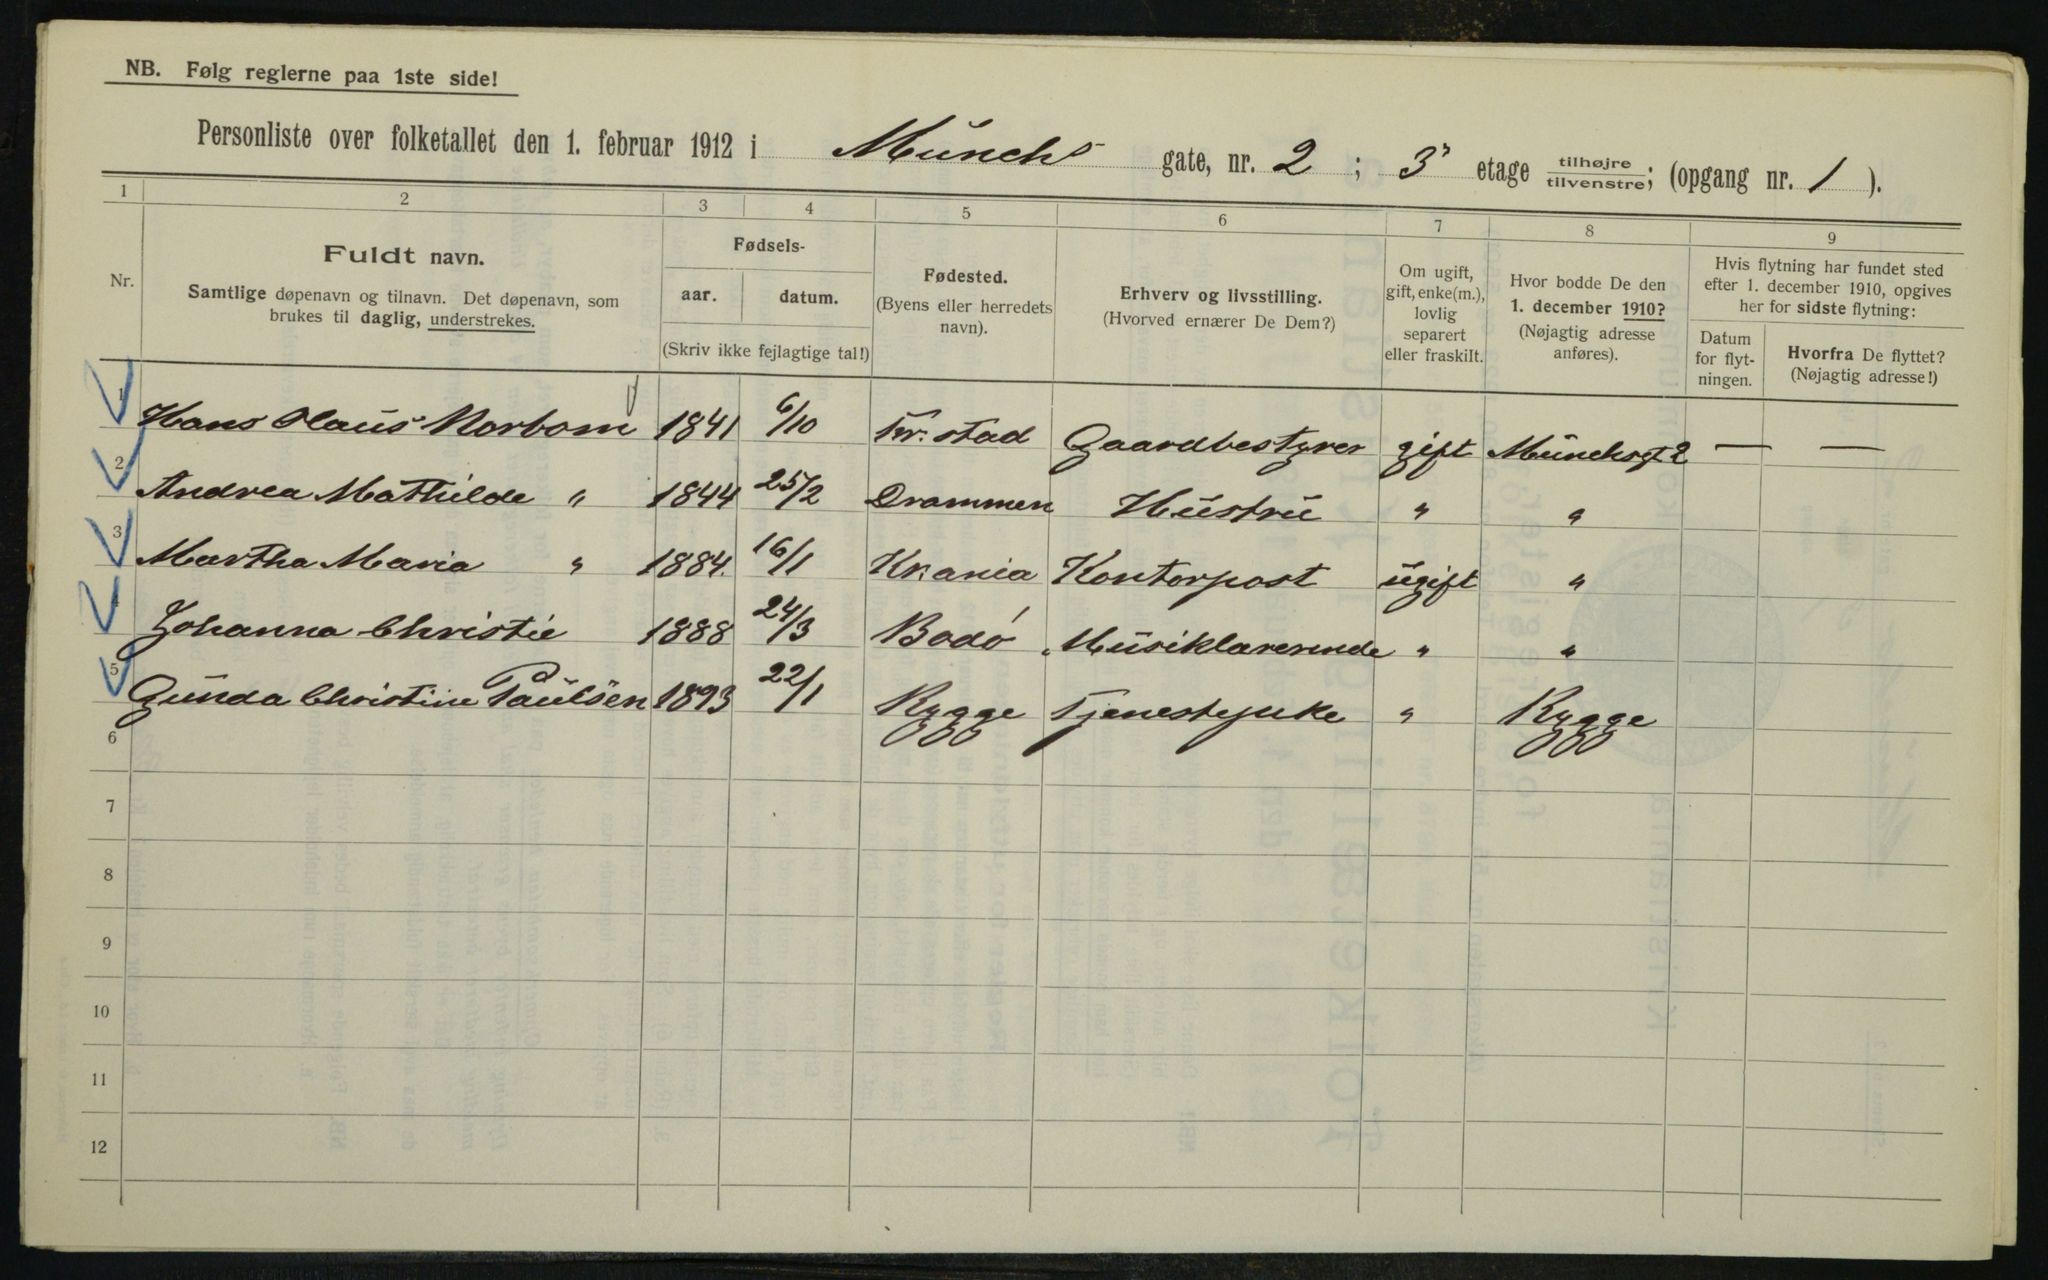 NB. Følg reglerne paa 1ste side!
Personliste over folketallet den 1. februar 1912 i Münchs gate, nr. 2 ; 3' etage tilhøjre/tilvenstre; (opgang nr. 1 ).
1 2 3 4 5 6 7 8 9
Nr.
Fuldt navn.
Samtlige døpenavn og tilnavn. Det døpenavn, som
brukes til daglig, understrekes.
Fødsels-
aar. datum.
(Skriv ikke fejlagtige tal!)
Fødested.
(Byens eller herredets
navn).
Erhverv og livsstilling.
(Hvorved ernærer De Dem?)
Om ugift,
gift, enke(m.),
lovlig
separert
eller fraskilt.
Hvor bodde De den
1. december 1910?
(Nøjagtig adresse
anføres).
Hvis flytning har fundet sted
efter 1. december 1910, opgives
her for sidste flytning:
Datum
for flyt-
ningen.
Hvorfra De flyttet?
(Nøjagtig adresse!)
1 Hans Olaus Norbom 1841 6/10 Fr.stad Gaardbestyrer gift Münchsgt 2 — —
2 Andrea Mathilde " 1844 25/2 Drammen Hüstrü " "
3 Martha Maria " 1884. 16/1 Kr.ania Kontorpost ügift "
4 Johanna Christie 1888 24/3 Bodó Müsiklærerinde " "
5 Günda Christine Paülsen 1893 22/1 Rygge Tjenestepike " Rygge
6
7
8
9
10
11
12